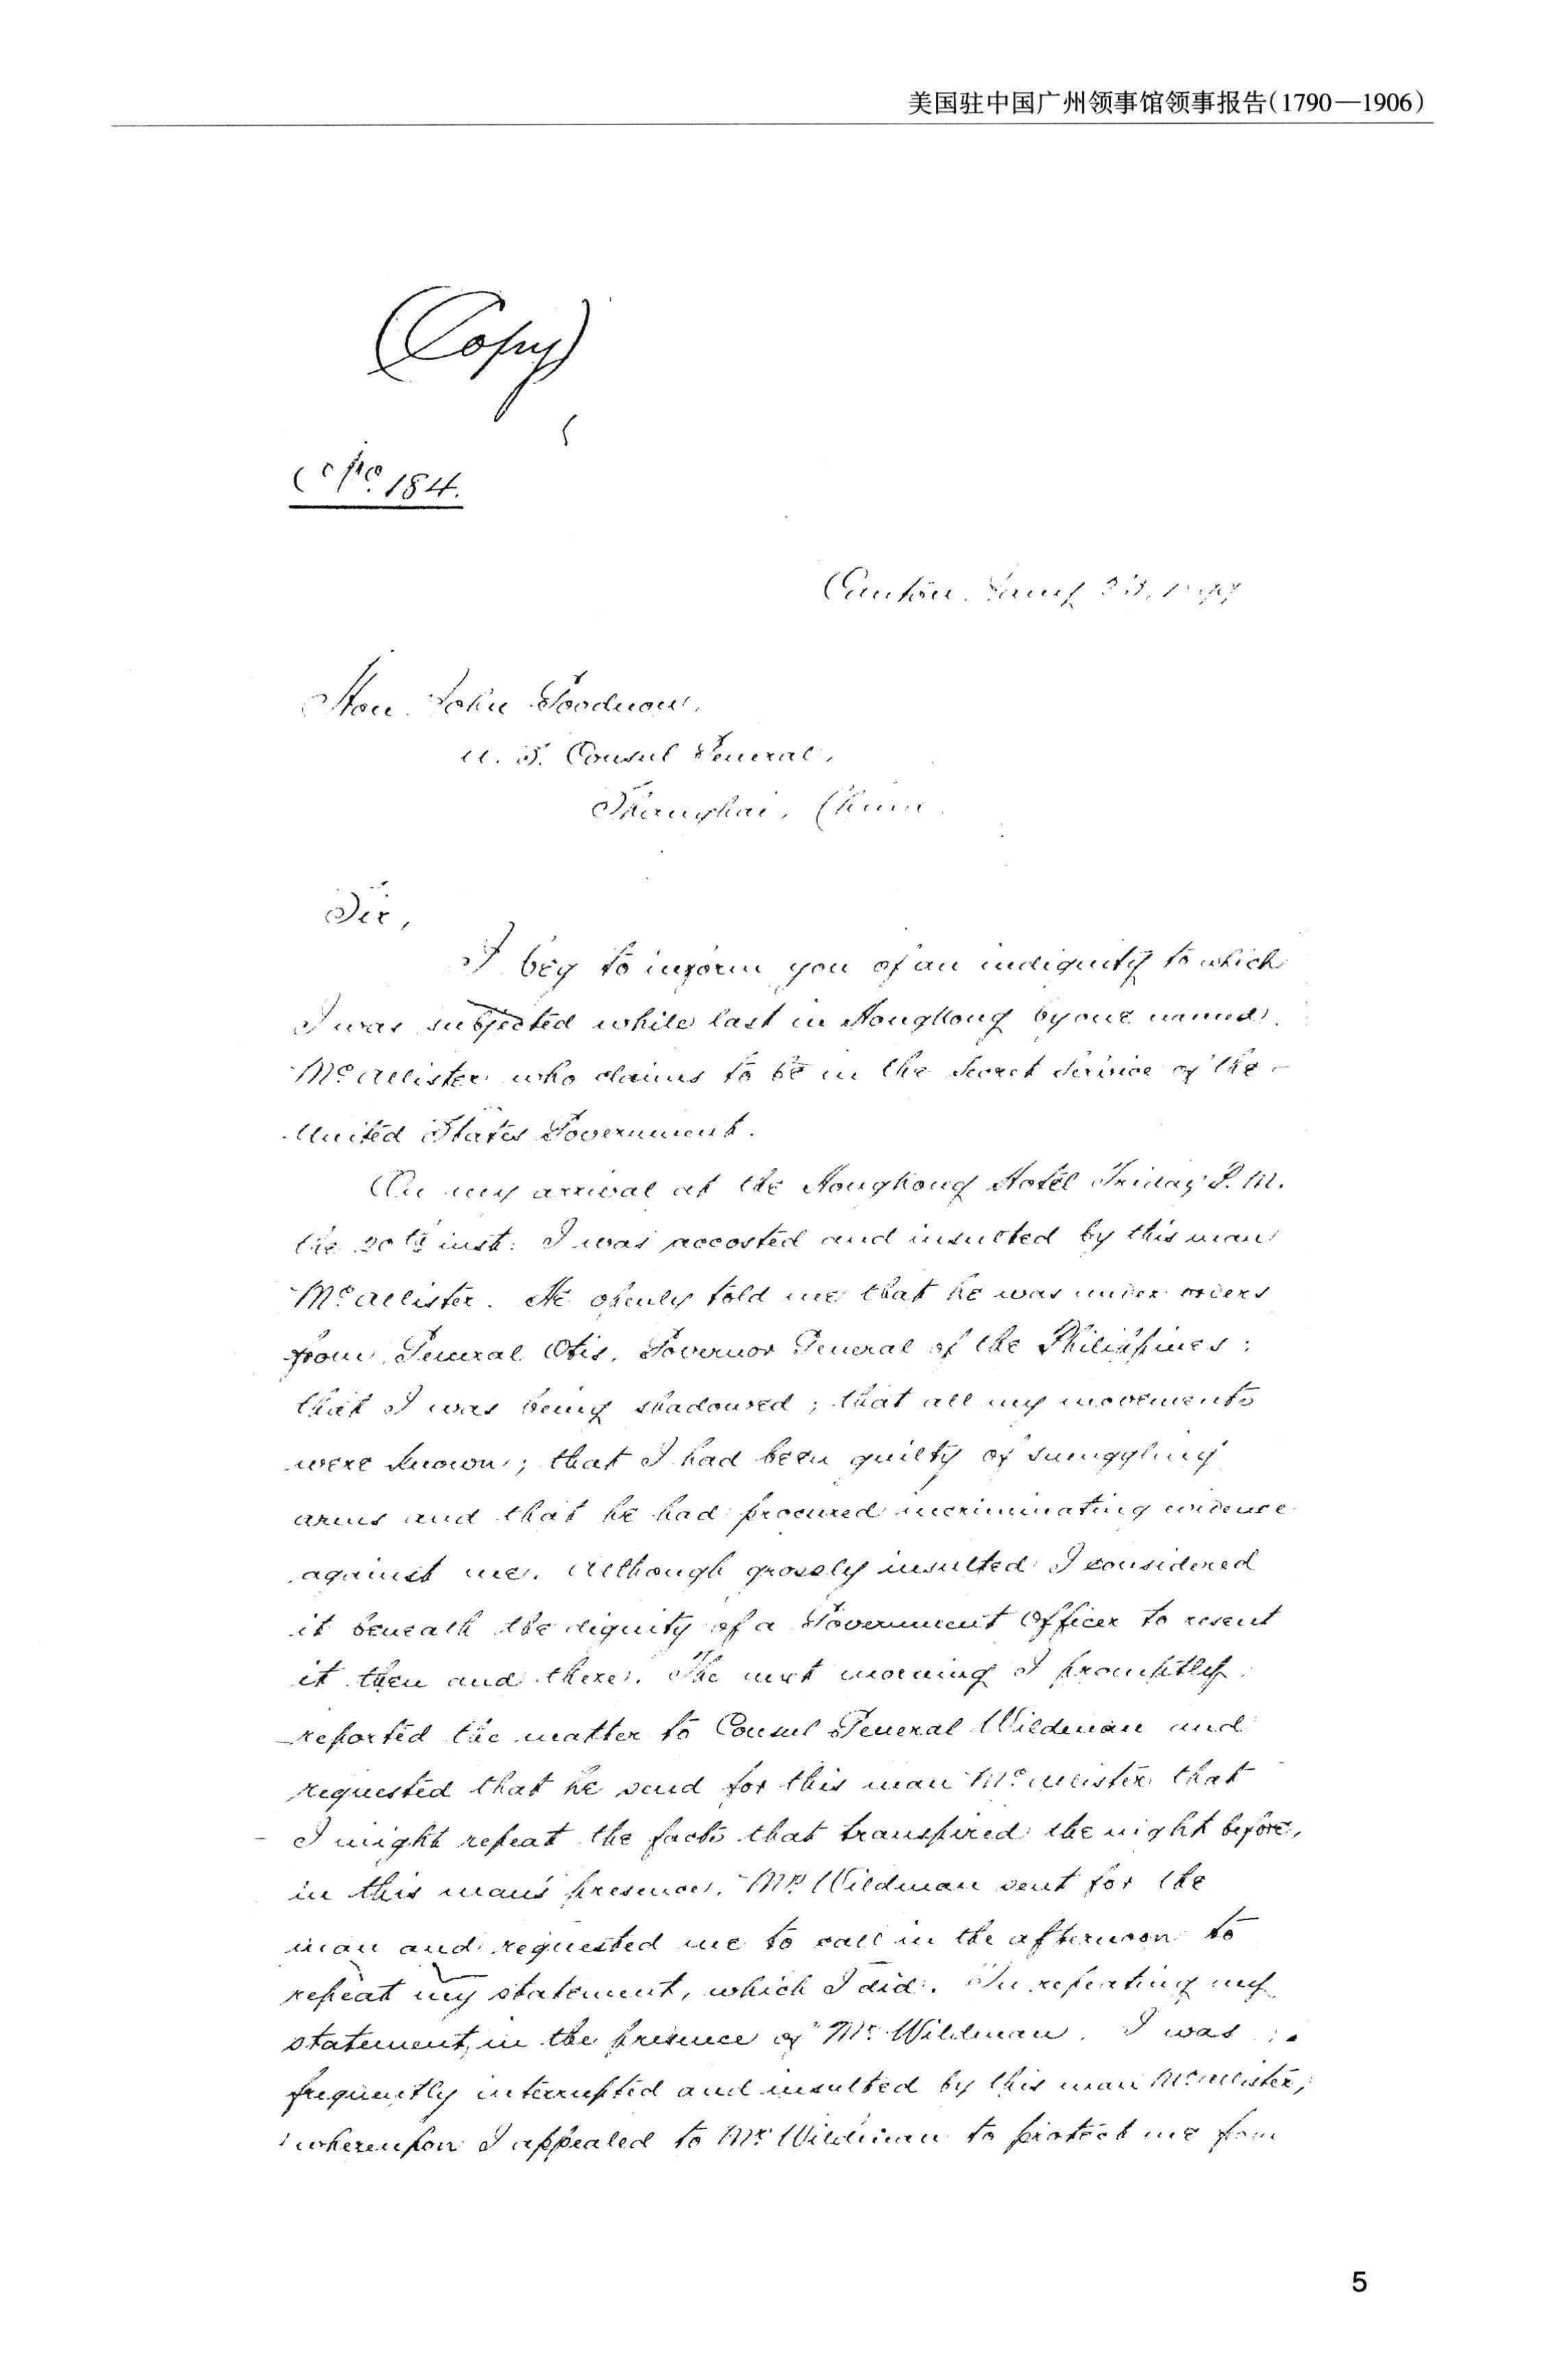 美国驻中国广州领事馆领事报告(1790—1906)
(Copy)
No. 184.
Canton,
Hon. John Goodnow,
U. S. Consul General,
Shanghai, China.
Sir,
I beg to inform you of an indignity to which
I was subjected while last in HongKong by one named
McAllister who claims to be in the Secret Service of the
United States Government.
On my arrival at the Hongkong Hotel Friday P. M.
the 20th inst: I was accosted and insulted by this man
McAllister. He openly told me that he was under orders
from General Otis, Governor General of the Philippines;
that I was being shadowed; that all my movements
were known; that I had been guilty of smuggling
arms and that he had procured incriminating evidence
against me. Although grossly insulted I considered
it beneath the dignity of a Government Officer to resent
it then and there. The next morning I promptly
reported the matter to Consul General Wildman and
requested that he send for this man McAllister that
I might repeat the facts that transpired the night before,
in this man's presence. Mr. Wildman sent for the
man and requested me to call in the afternoon to
repeat my statement, which I did. In repeating my
statement, in the presence of Mr. Wildman, I was
frequently interrupted and insulted by this man McAllister,
whereupon I appealed to Mr. Wildman to protect me from
5